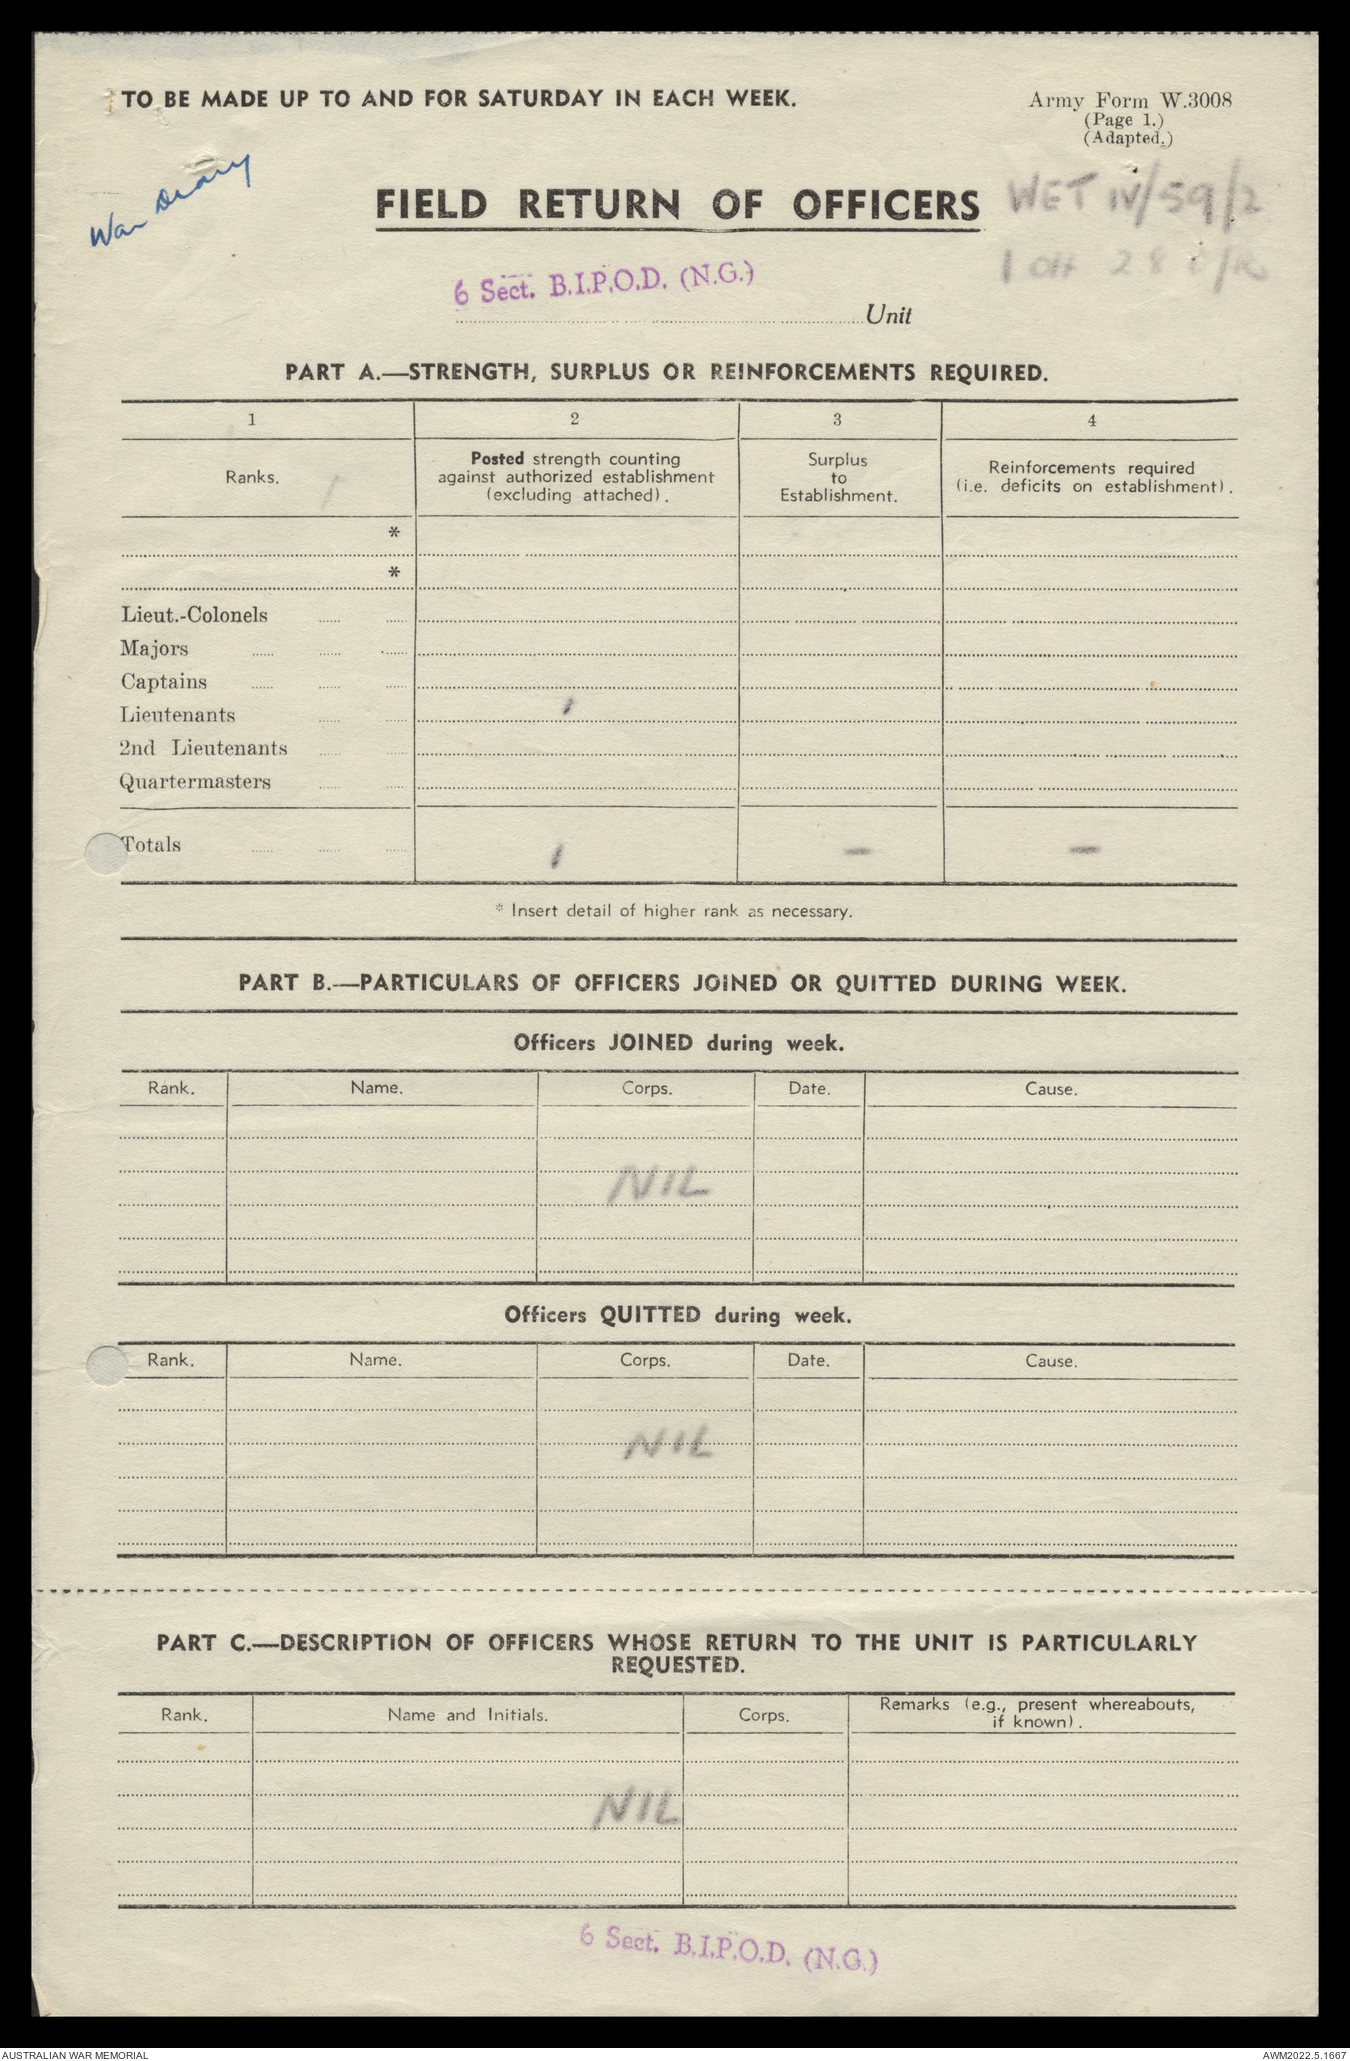 TO BE MADE UP TO AND FOR SATURDAY IN EACH WEEK.
Army Form W.3008
(Page 1.)
(Adapted.)
War Diary
FIELD RETURN OF OFFICERS
WET IV/59/2
1 Off 28 O/R
6 Sect. B.I.P.O.D. (N.G.)
Unit
PART A.—STRENGTH, SURPLUS OR REINFORCEMENTS REQUIRED.
1 2 3 4
Ranks.
Posted strength counting
against authorized establishment
(excluding attached).
Surplus
to
Establishment.
Reinforcements required
(i.e. deficits on establishment).
*
*
Lieut.-Colonels
Majors
Captains
Lieutenants 1
2nd Lieutenants
Quartermasters
Totals 1 — —
* Insert detail of higher rank as necessary.
PART B.—PARTICULARS OF OFFICERS JOINED OR QUITTED DURING WEEK.
Officers JOINED during week.
Rank. Name. Corps. Date. Cause.
NIL
Officers QUITTED during week.
Rank. Name. Corps. Date. Cause.
NIL
PART C.—DESCRIPTION OF OFFICERS WHOSE RETURN TO THE UNIT IS PARTICULARLY
REQUESTED.
Rank. Name and Initials. Corps. Remarks (e.g., present whereabouts,
if known).
NIL
6 Sect. B.I.P.O.D. (N.G.)
AUSTRALIAN WAR MEMORIAL AWM2022.5.1667